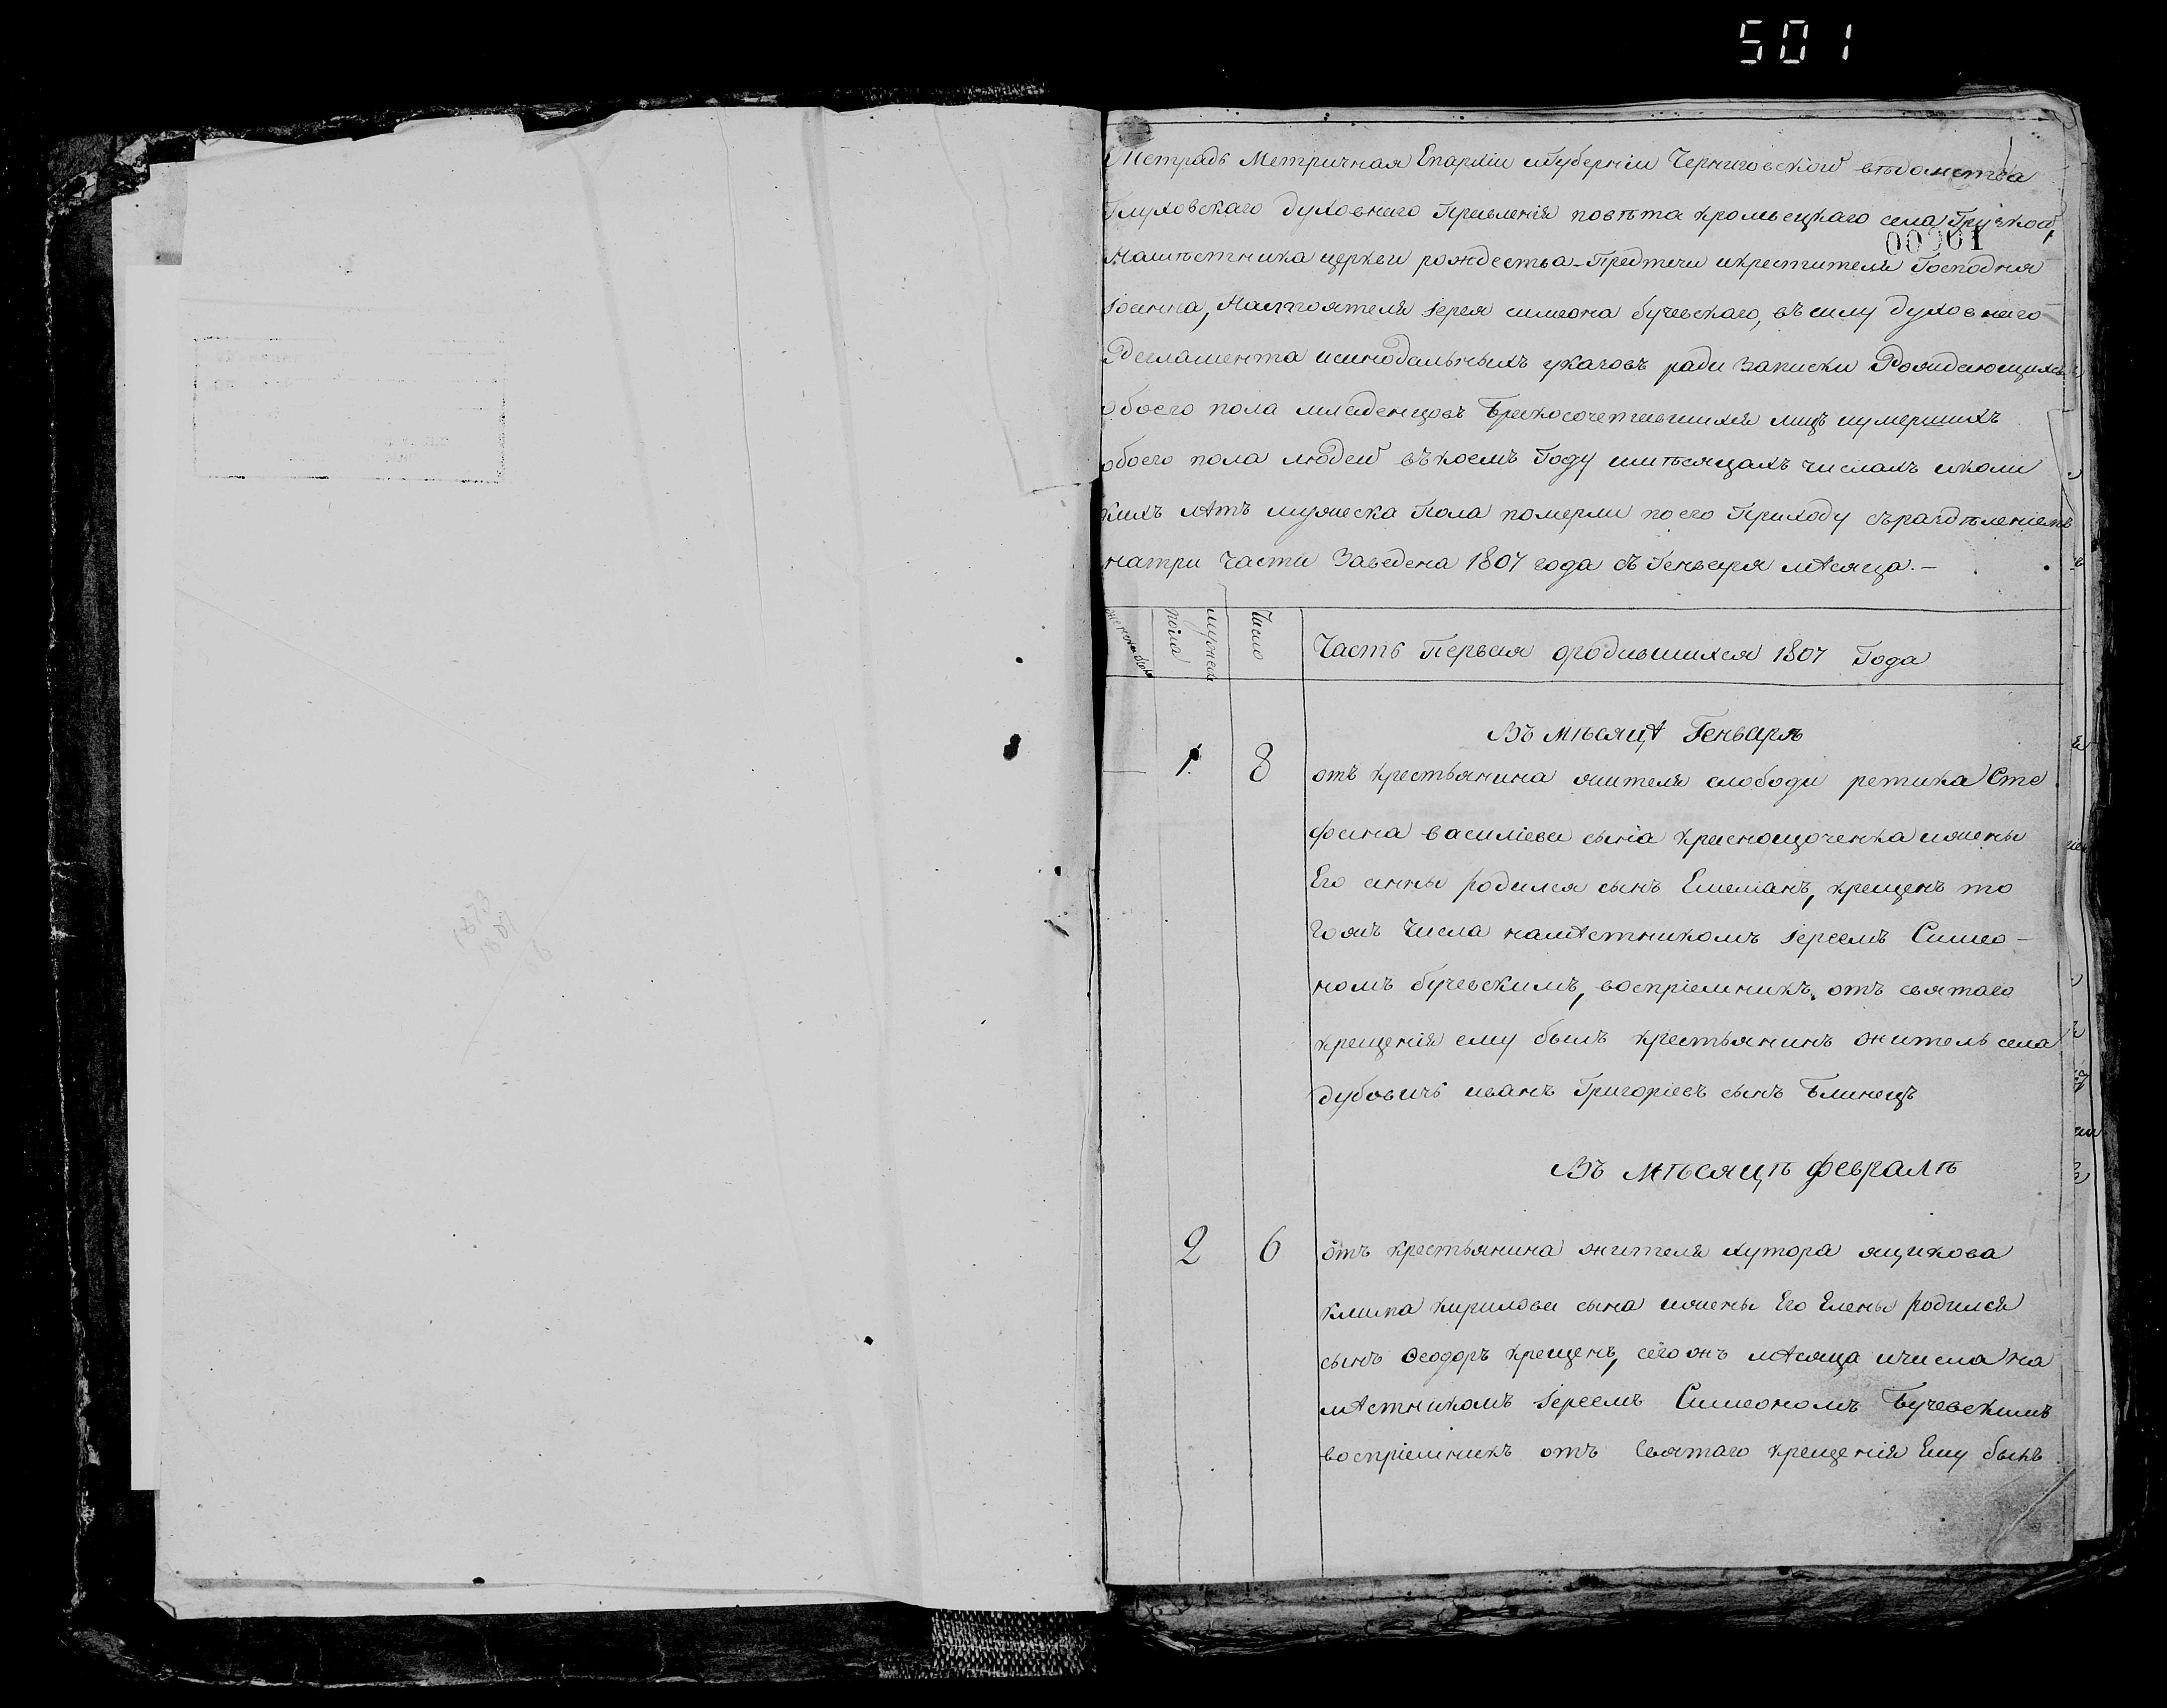 501
Тетрадь Метричная Епархіи игуберніи Черниговскіой вѣдомства
Глуховскаго духовнаго Правленія повѣта кролевецкаго села Грузкой,
00001
Намѣстника церкви рождества Предтечи икрестителя Господня
Іоанна, Настоятеля Іерея симеона бучевскаго, въсилу духовнаго
Регламента исинодальныхъ указовъ ради Записки Рождающихся
обоего пола младенцовъ Бракосочетавшихся лицъ иумершихъ
обоего пола людей въкоемъ Году имѣсяцахъ числахъ иколи
кихъ лѣтъ мужеска Пола померли поего Приходу съраздѣленіемъ
натри части Заведена 1807 года съ Генваря мѣсяца.-
женска пола
мужеска
пола
Число
Часть Первая ородившихся 1807 Года
Въ мѣсяцѣ Генварѣ
1 8 отъ крестьянина жителя слободи ретика Сте
фана василіева сына красnощоченка ижены
Его анны родился сынъ Емеліанъ, крещенъ то
гожъ числа намѣстникомъ Іереемъ Симео-
номъ бучевскимъ, воспріемникъ отъ святаго
крещенія ему былъ крестьянинъ житель села
дубовичь иванъ Григоріевъ сынъ Блинецъ
Въ мѣсяцѣ февралѣ
2 6 отъ крестьянина жителя хутора ящикова
клима кирилова сына ижены Его Елены родился
сынъ Ѳеодоръ крещенъ, сегожъ мѣсяца ичисла на
мѣстникомъ Іереемъ Симеономъ Бучевскимъ
воспріемникъ отъ Святаго крещенія Ему былъ